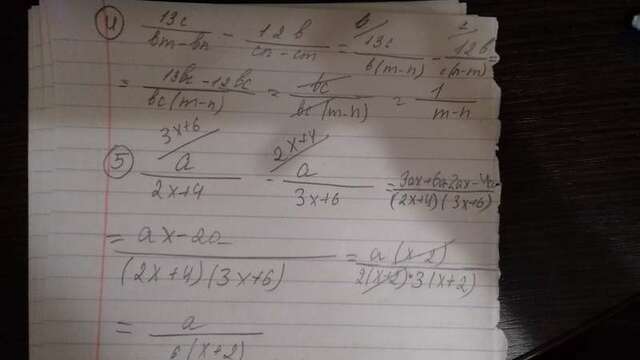 ④ 13c/(bm-bn) - 12b/(cn-cm) = 13c/b(m-n) - 12b/c(n-m) =
= (13bc-12bc)/bc(m-n) = bc/bc(m-n) = 1/(m-n)
⑤ a/(2x+4) - a/(3x+6) = /((2x+4)(3x+6))
= (ax-2a)/((2x+4)(3x+6)) = a(x-2)/(2(x+2)·3(x+2))
= a/6(x+2)